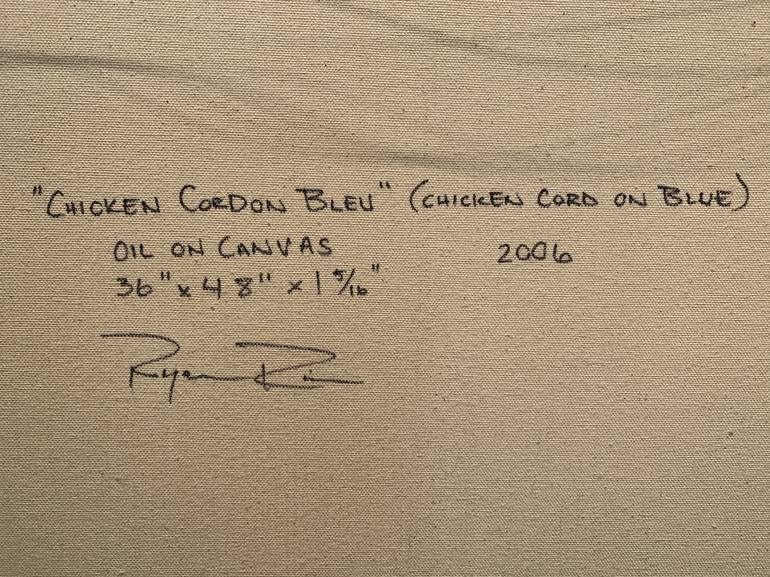 "CHICKEN CORDON BLEU" (CHICKEN CORD ON BLUE)
OIL ON CANVAS 2006
36" x 48" x 1 5/16"
Ryan